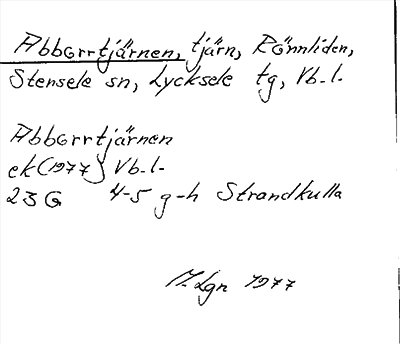 Abborrtjärnen, tjärn, Rönnliden,
Stensele sn, Lycksele tg, Vb. l.
Abborrtjärnen
ek (1977) Vb. l.
23 G 4-5 g-h Strandkulla
M. Lgn 1977